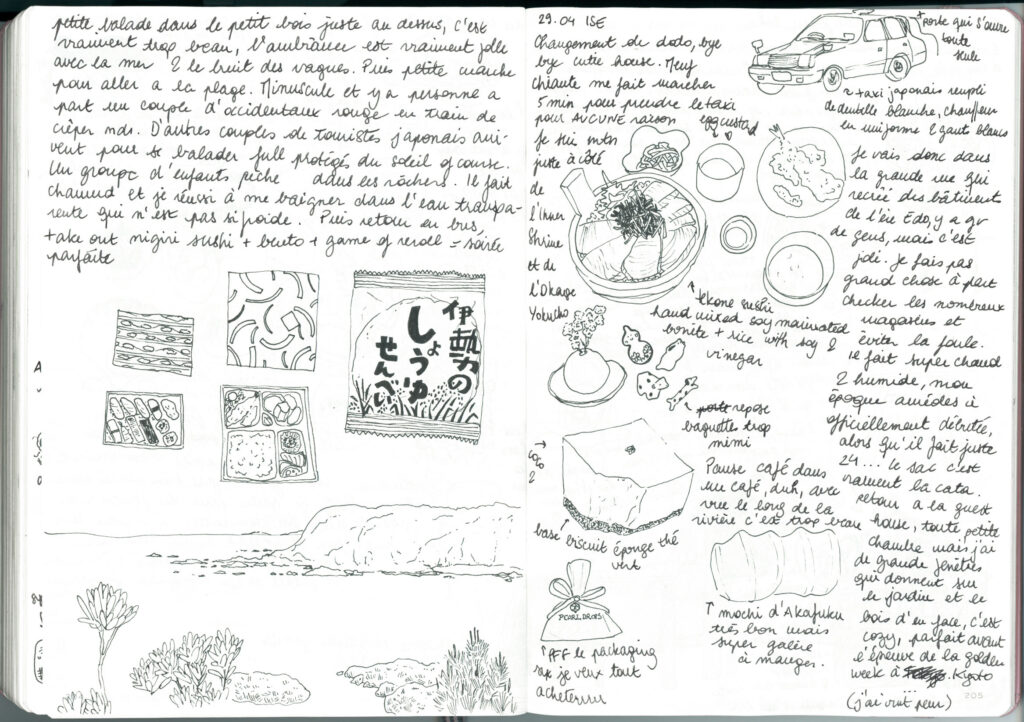 petite balade dans le petit bois juste au dessus, c'est
vraiment trop beau, l'ambiance est vraiment jolie
avec la mer & le bruit des vagues. Puis petite marche
pour aller a la plage. Minuscule et y a personne a
part un couple d'occidentaux rouge en train de
crâmer mdr. D'autres couples de touristes japonais arri-
vent pour se balader full protégés du soleil of course.
Un groupe d'enfants pêche dans les rochers. Il fait
chauud et je réussi à me baigner dans l'eau transpa-
rente qui n'est pas si froide. Puis retour en bus,
take out nigiri sushi + bento + game of reroll = soirée
parfaite
伊勢の
しょうゆ
せんべい
29.04 ISE
Changement de dodo, bye
bye cutie house. Meuf
chiante me fait marcher
5 min pour prendre le taxi
pour AUCUNE raison
Je suis mtn
juste à côté
de
l'Inner
Shrine
et de
l'Okage
Yokocho
↑ porte qui s'ouvre
toute
seule
↑ taxi japonais rempli
de dentelle blanche, chauffeur
en uniforme & gants blancs
egg custard
↑ tekone sushi
hand mixed soy marinated
bonite + rice with soy &
vinegar
↑ repose
baguettes trop
mimi
↑
COCO
2
base biscuit éponge thé
vert
PEARL DROPS
↑ PFF le packaging
je veux tout
acheterrrr
Pause café dans
un café, duh, avec
vue le long de la
rivière c'est trop beau
↑ mochi d'Akafuku
très bon mais
super galère
à manger.
Je vais donc dans
la grande rue qui
recrée des bâtiments
de l'ère Edo, y a gv
de gens, mais c'est
joli. Je fais pas
grand chose à part
checker les nombreux
magasins et
éviter la foule.
Il fait super chaud
& humide, mon
époque
officiellement débutée,
alors qu'il fait juste
24... le sac c'est
vraiment la cata.
retour a la guest
house, toute petite
chambre mais j'ai
de grande fenêtres
qui donnent sur
le jardin et le
bois d'en face, c'est
cozy, parfait avant
l'épreuve de la golden
week à Kyoto
...
(j'ai vrmt peur)
205